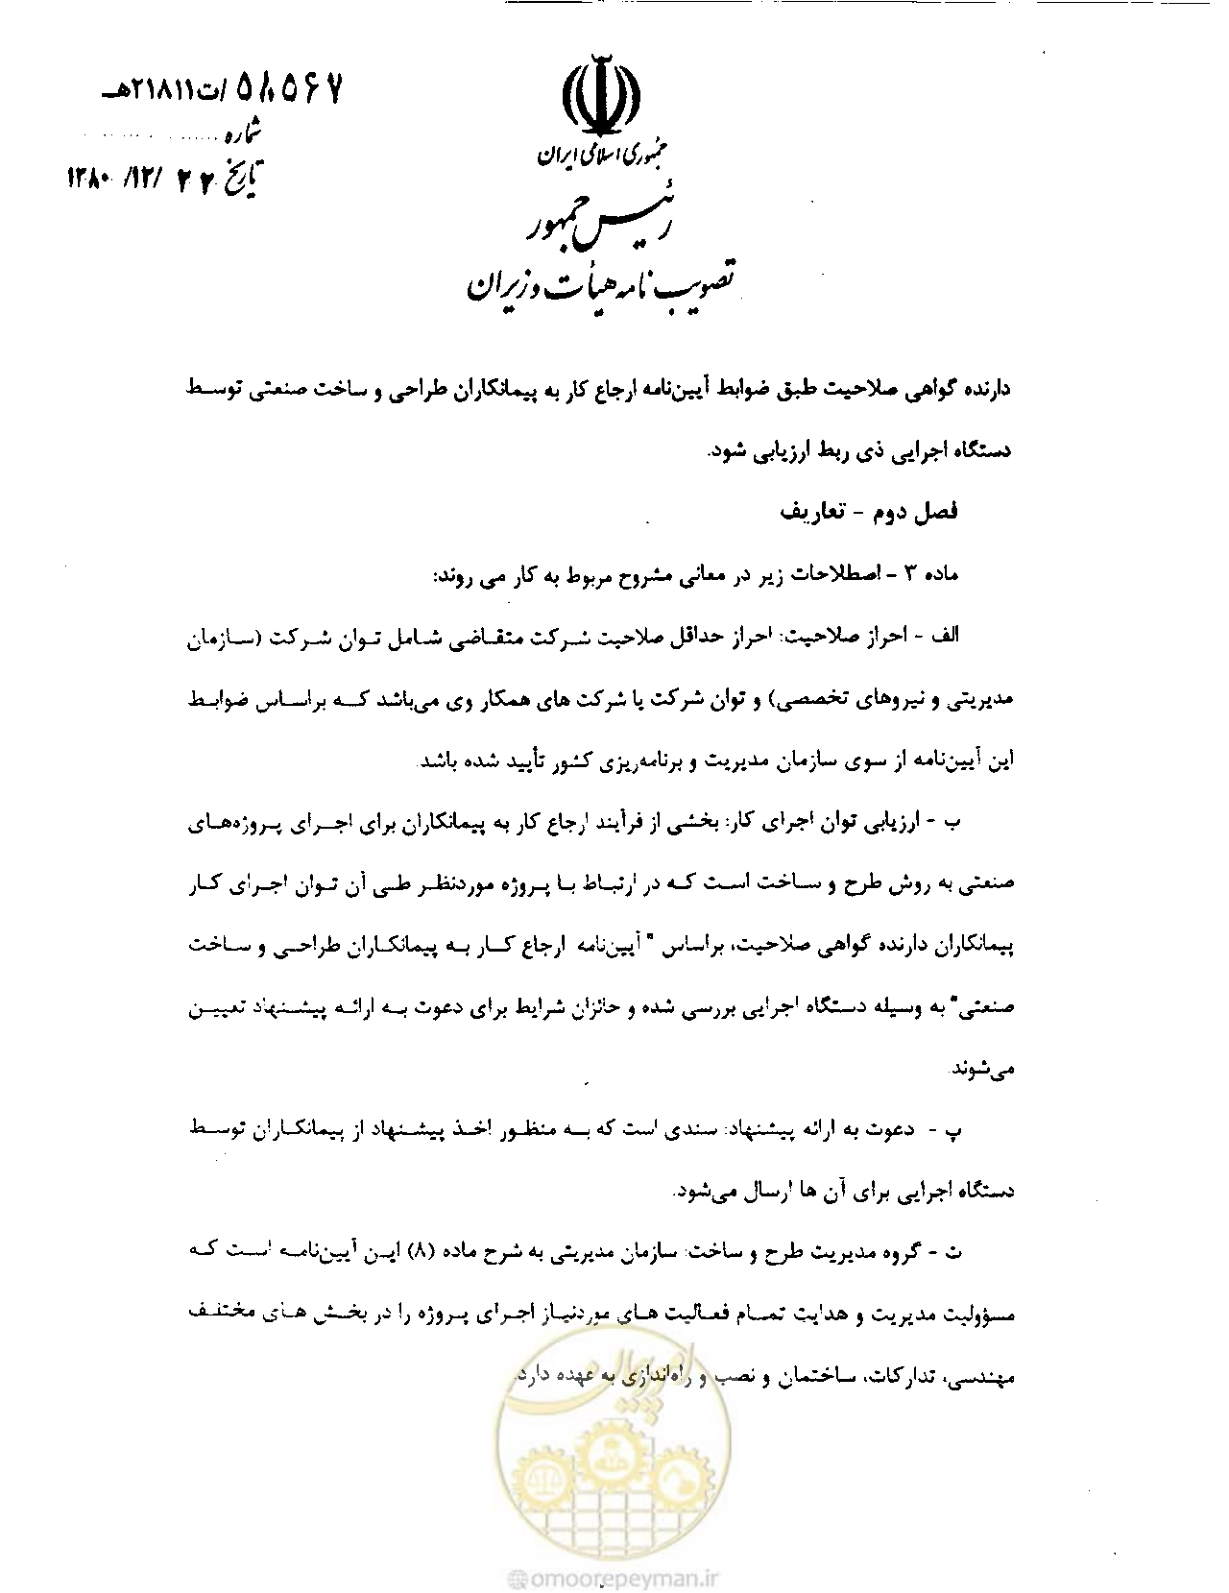 ۵۸۵۶۷/ت۲۱۸۱۱هـ
شماره
تاریخ ۲۲ /۱۲/ ۱۳۸۰
جمهوری اسلامی ایران
رئیس جمهور
تصویب نامه هیأت وزیران
دارنده گواهی صلاحیت طبق ضوابط آیین‌نامه ارجاع کار به پیمانکاران طراحی و ساخت صنعتی توسط
دستگاه اجرایی ذی ربط ارزیابی شود.
فصل دوم - تعاریف
ماده ۳ - اصطلاحات زیر در معانی مشروح مربوط به کار می روند:
الف - احراز صلاحیت: احراز حداقل صلاحیت شرکت متقاضی شامل توان شرکت (سازمان
مدیریتی و نیروهای تخصصی) و توان شرکت یا شرکت های همکار وی می‌باشد که براساس ضوابط
این آیین‌نامه از سوی سازمان مدیریت و برنامه‌ریزی کشور تأیید شده باشد.
ب - ارزیابی توان اجرای کار: بخشی از فرآیند ارجاع کار به پیمانکاران برای اجرای پروژه‌های
صنعتی به روش طرح و ساخت است که در ارتباط با پروژه موردنظر طی آن توان اجرای کار
پیمانکاران دارنده گواهی صلاحیت، براساس "آیین‌نامه ارجاع کار به پیمانکاران طراحی و ساخت
صنعتی" به وسیله دستگاه اجرایی بررسی شده و حائزان شرایط برای دعوت به ارائه پیشنهاد تعیین
می‌شوند.
پ - دعوت به ارائه پیشنهاد: سندی است که به منظور اخذ پیشنهاد از پیمانکاران توسط
دستگاه اجرایی برای آن ها ارسال می‌شود.
ت - گروه مدیریت طرح و ساخت: سازمان مدیریتی به شرح ماده (۸) این آیین‌نامه است که
مسؤولیت مدیریت و هدایت تمام فعالیت های موردنیاز اجرای پروژه را در بخش های مختلف
مهندسی، تدارکات، ساختمان و نصب و راه‌اندازی به عهده دارد.
امور پیمان
omoorepeyman.ir